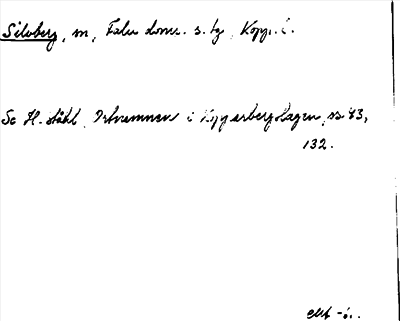 Silvberg, m, Falu doms. s. tg, Kopp. l.
Se H. Ståhl, Ortnamnen i Kopparbergslagen, ss 83,
132.